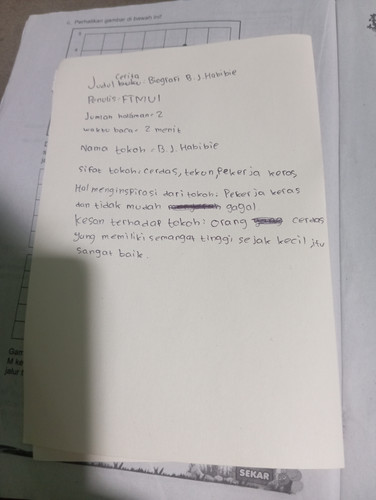 c. Perhatikan gambar di bawah ini!
Cerita
Judul buku: Biografi B.J. Habibie
Penulis: FTMUI
Jumlah halaman: 2
waktu baca: 2 menit
Nama tokoh: B.J. Habibie
Sifat tokoh: cerdas, tekun pekerja keras,
Hal menginspirasi dari tokoh: Pekerja keras
dan tidak mudah gagal.
Kesan terhadap tokoh: orang cerdas
yang memiliki semangat tinggi sejak kecil itu
sangat baik.
Gam
M ke
jalur t
SEKAR